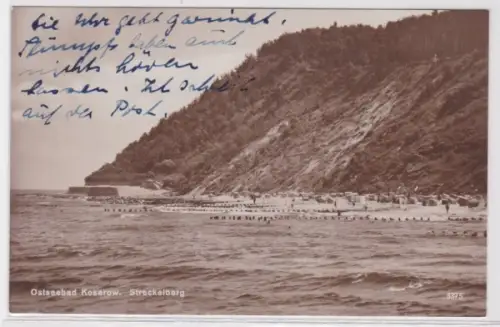 Die Uhr geht garnicht.
Strümpfe haben auch
nichts hören
lassen. Ich
auf der Post.
Ostseebad Koserow. Streckelberg
3375